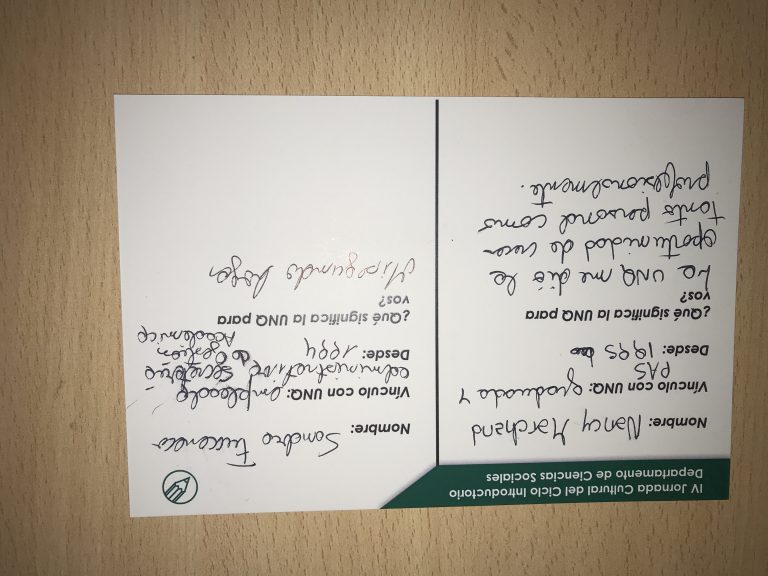 IV Jornada Cultural del Ciclo Introductorio
Departamento de Ciencias Sociales
Nombre: Nancy Marchand
Vínculo con UNQ: graduada y
PAS
Desde: 1995
¿Qué significa la UNQ para
vos?
La UNQ me dió la
oportunidad de crecer
tanto personal como
profesionalmente.
Nombre: Sandra
Vínculo con UNQ: empleada
administrativa Secretaría
de gestión
Académica
Desde: 1994
¿Qué significa la UNQ para
vos?
Mi segundo hogar